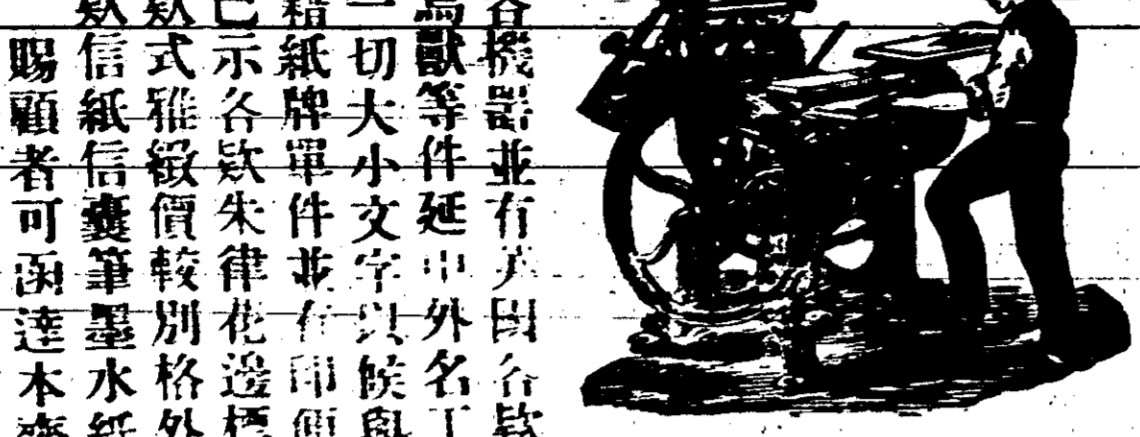 各機器並有英国各欵
鳥獸等件延中外名工
一切大小文字以候與
籍紙牌單件並有印便
已示各欵朱律花邊標
欵式雅緻價較別格外
欵信紙信囊筆墨水紙
賜顧者可函達本齋